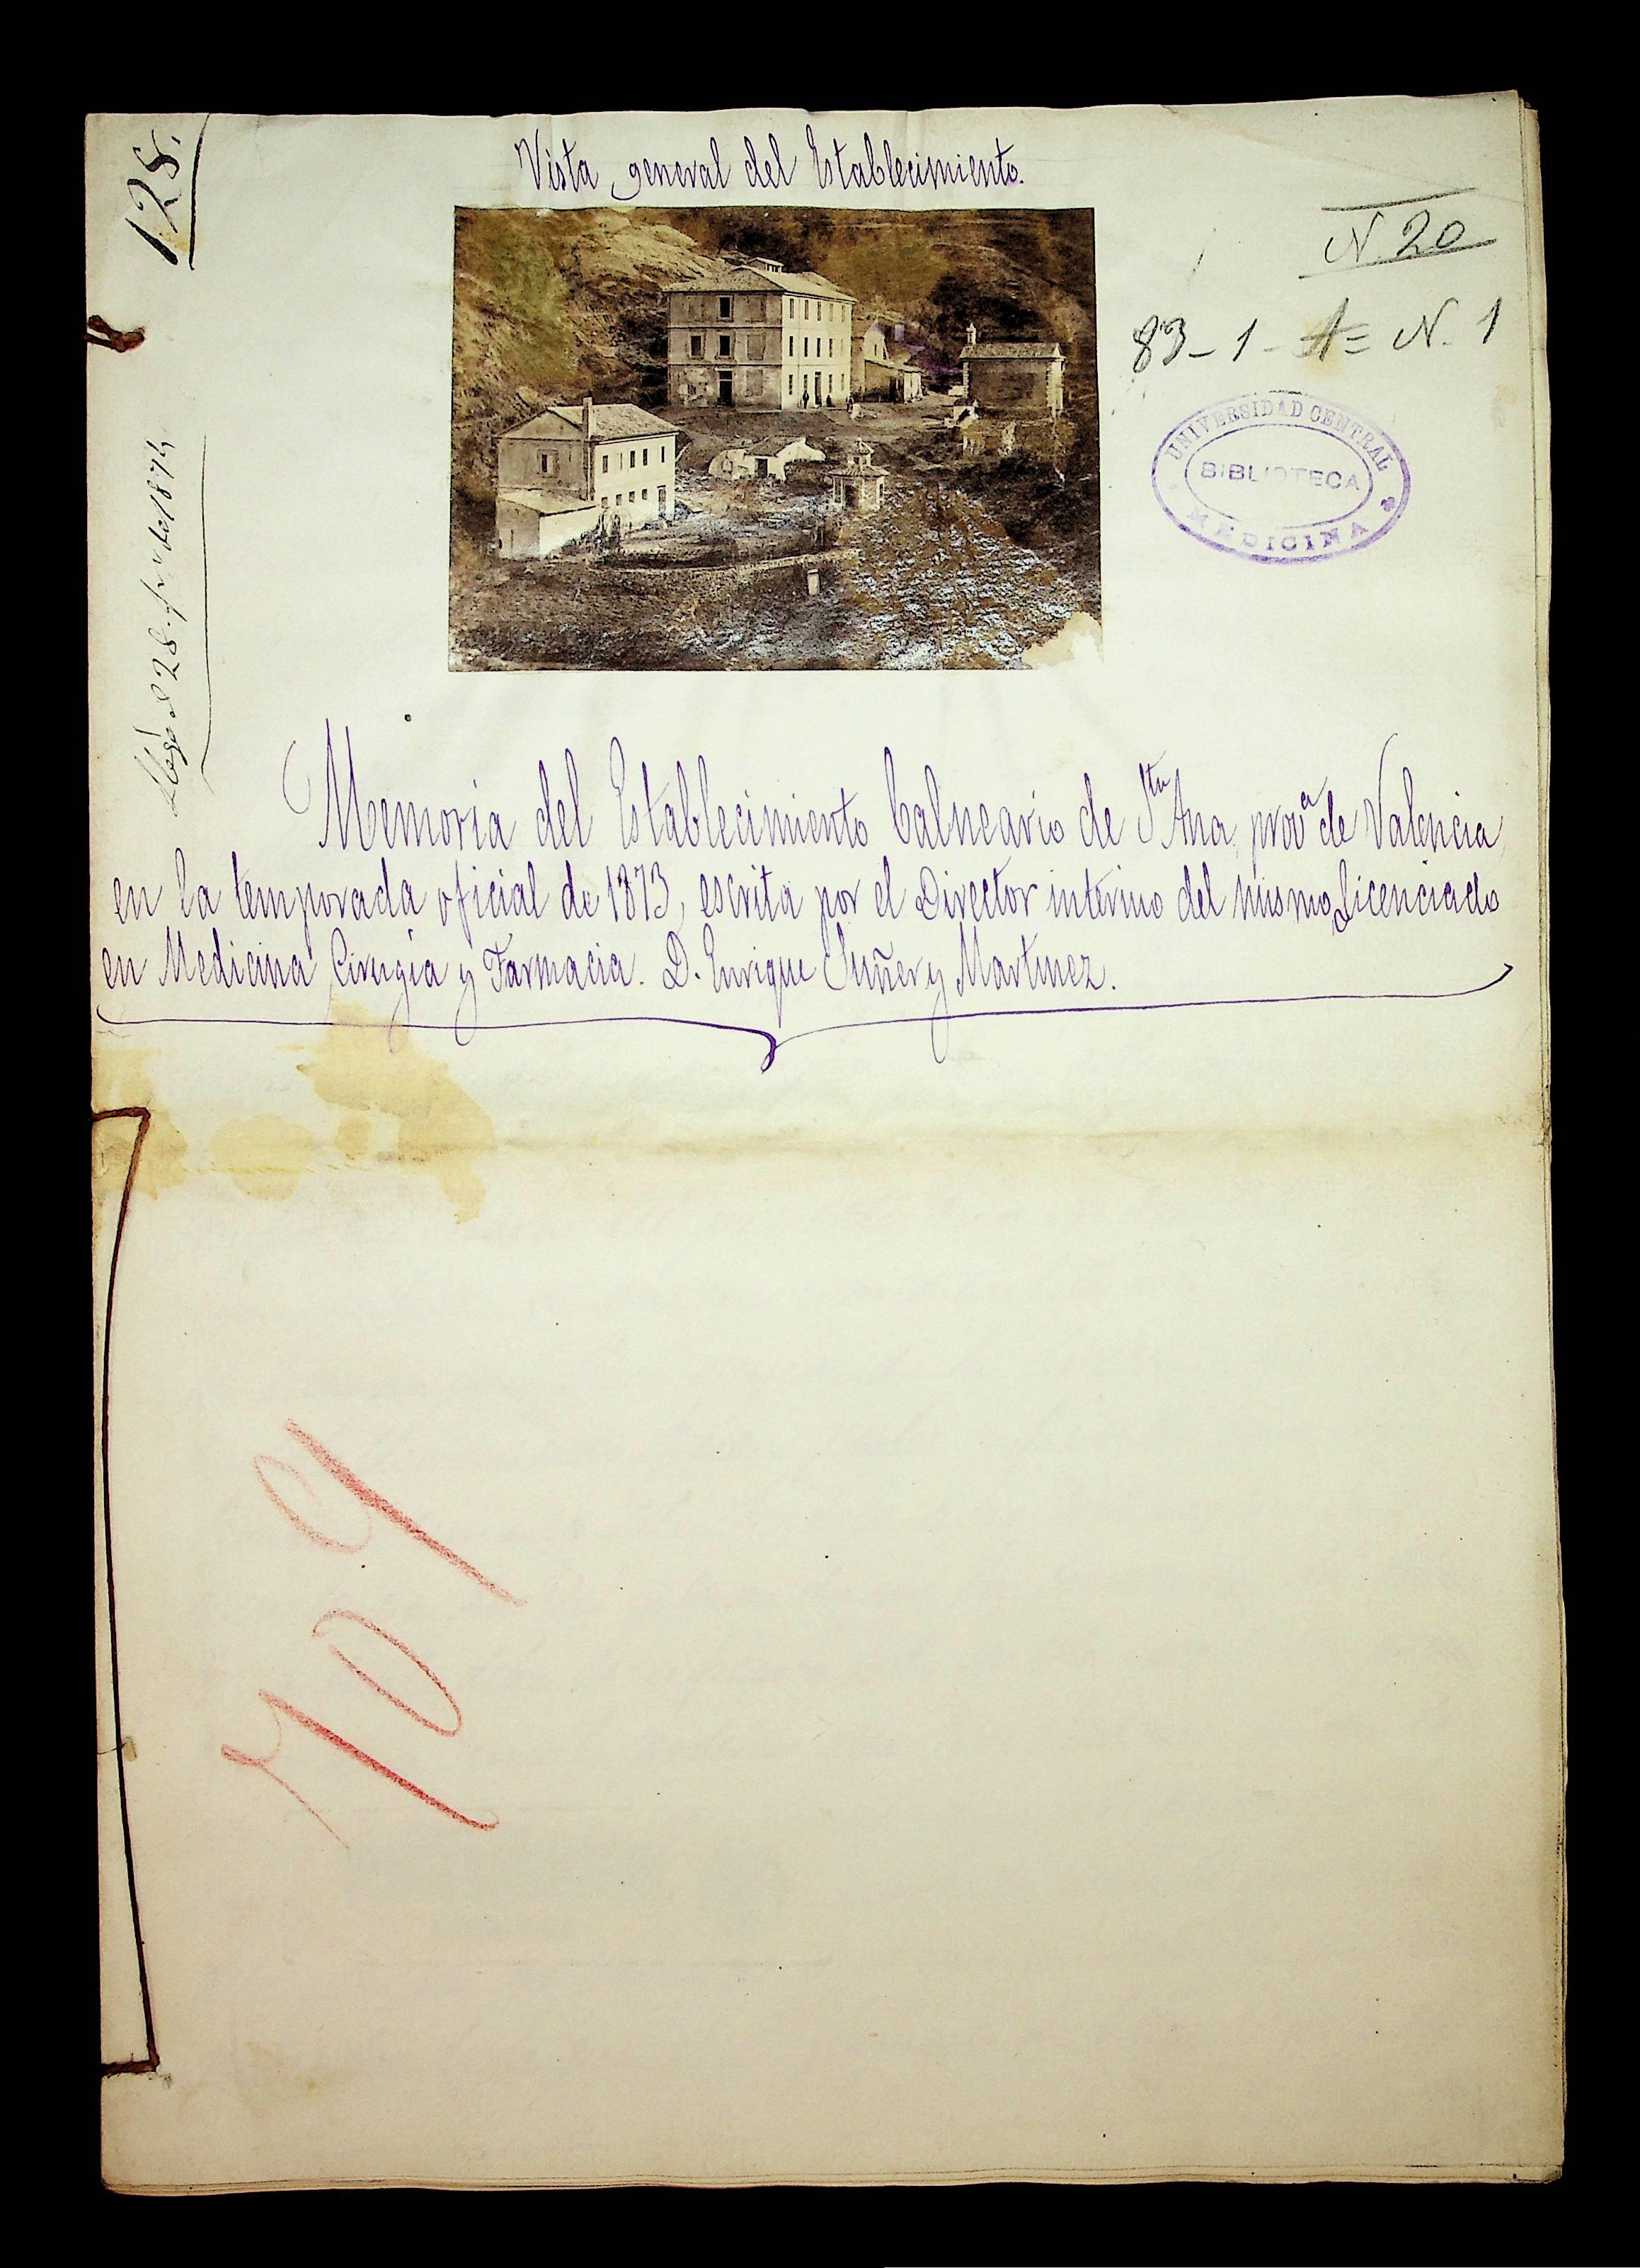 128.
Vista general del Establecimiento.
N. 20
83-1-A= N. 1
UNIVERSIDAD CENTRAL
BIBLIOTECA
MEDICINA
28 1874
Memoria del Establecimiento balneario de Sta Ana, prova de Valencia,
en la temporada oficial de 1873, escrita por el Director interino del mismo, Licenciado
en Medicina Cirugia y Farmacia. D. Enrique Suñer y Martinez.
709